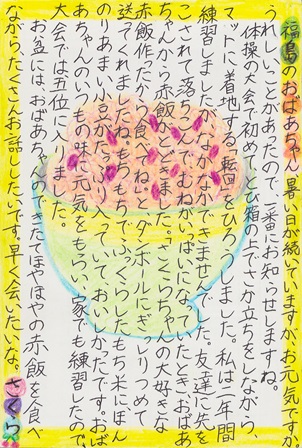 福島のおばあちゃん、暑い日が続いていますが、お元気ですか。
うれしいことがあったので、一番にお知らせしますね。
体操の大会で初めてとび箱の上でさか立ちをしながら、
マットに着地する「転回」をひろうしました。私は一年間
練習しましたが、なかなかできませんでした。友達に先を
こされて落ちこんで、むねがいっぱいになったとき、おばあ
ちゃんから赤飯がとどきました。「さくらちゃんの大好きな
赤飯作ったから食べてね」と、ダンボールにぎっしりつめて
送ってくれましたね。もちもちでふっくらしたもち米に、ほん
のりあまい小豆がたっぷり入っていて、おいしかったです。おば
あちゃんのいつもの味に元気をもらい、家でも練習したので、
大会では五位に入りました。
お盆には、おばあちゃんのできたてほやほやの赤飯を食べ
ながら、たくさんお話ししたいです。早く会いたいな。さくら